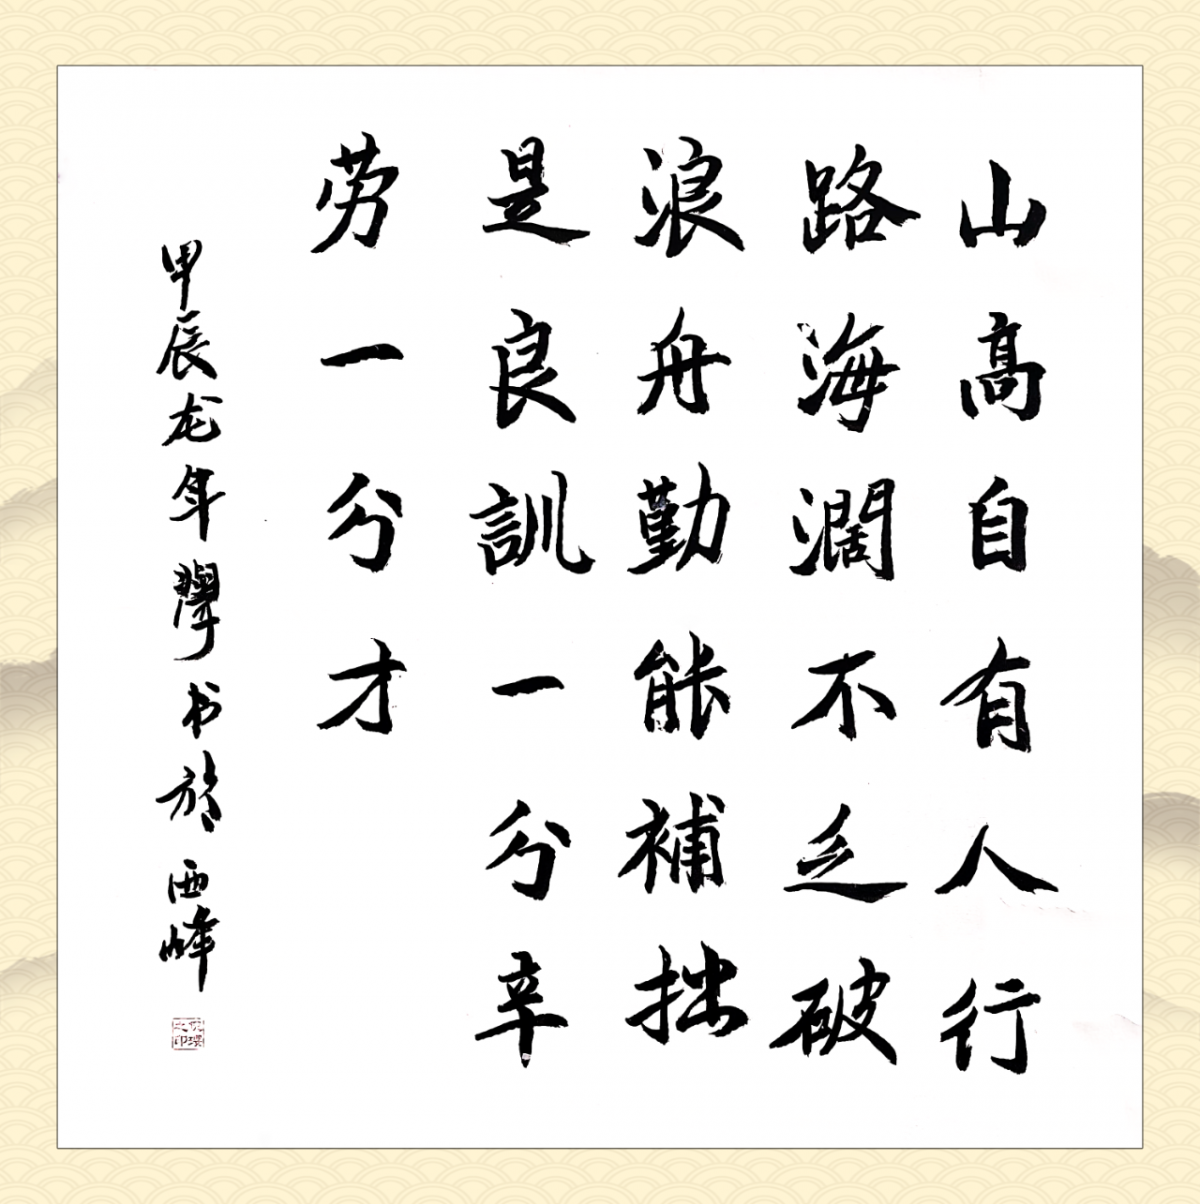 山高自有人行
路海濶不乏破
浪舟勤能補拙
是良訓一分辛
劳一分才
甲辰龙年學书於西峰